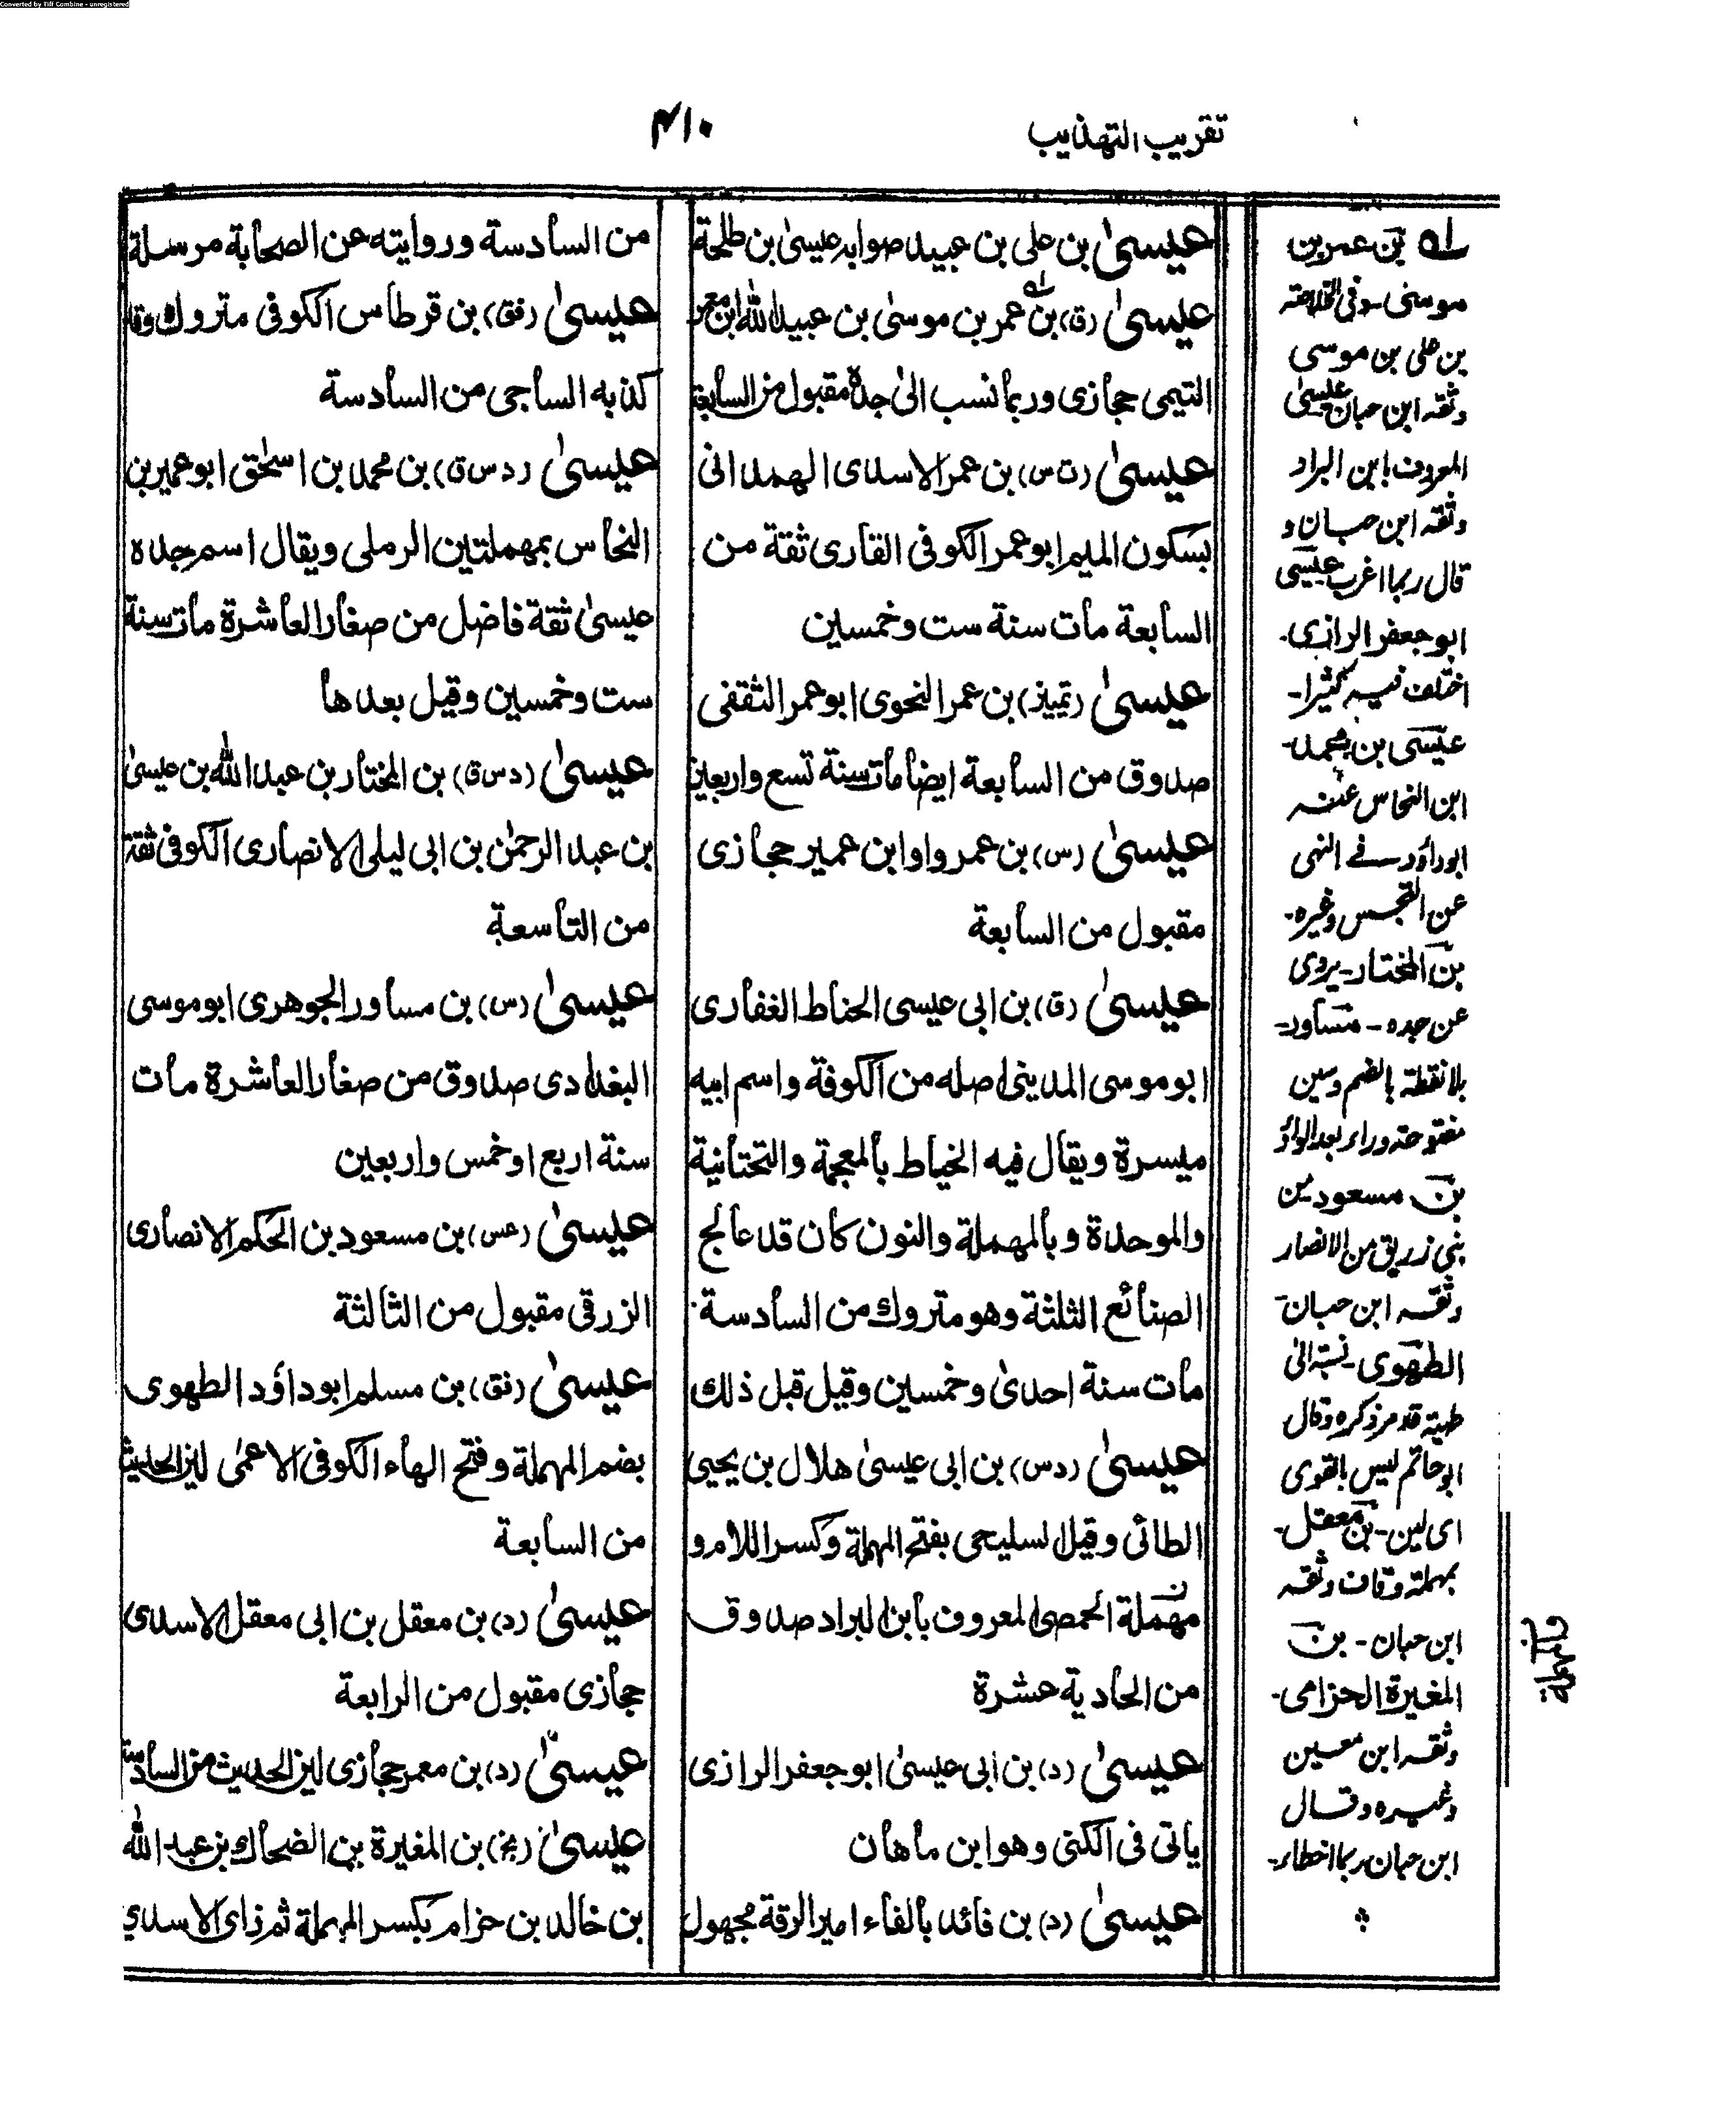 Converted by Tiff Combine - unregistered
تقریب التهذیب
۴۱۰
عیسیٰ بن علی بن عبید صوابه عیسیٰ بن طلحة
عیسیٰ (ق) بن عمر بن موسیٰ بن عبید الله ابن معمر
التیمی حجازی وربما نسب الیٰ جده مقبول من السابعة
عیسیٰ (ت س) بن عمر الاسدی الهمدانی
بسکون المیم ابو عمر الکوفی القاری ثقة من
السابعة مات سنة ست وخمسین
عیسیٰ (تمییز) بن عمر النحوی ابو عمر الثقفی
صدوق من السابعة ایضا مات سنة تسع واربعین
عیسیٰ (س) بن عمرو او ابن عمیر حجازی
مقبول من السابعة
عیسیٰ (ق) بن ابی عیسی الحناط الغفاری
ابو موسی المدینی اصله من الکوفة واسم ابیه
میسرة ویقال فیه الخیاط بالمعجمة والتحتانیة
والموحدة وبالمهملة والنون کان قد عالج
الصنائع الثلثة وهو متروك من السادسة
مات سنة احدیٰ وخمسین وقیل قبل ذلك
عیسیٰ (د س) بن ابی عیسیٰ هلال بن یحیی
الطائی وقیل لسلیحی بفتح المهملة وکسر اللام و
مهملة الحمصی المعروف بابن البراد صدوق
من الحادیة عشرة
عیسیٰ (د) بن ابی عیسیٰ ابو جعفر الرازی
یاتی فی الکنی وهو ابن ماهان
عیسیٰ (د) بن فائد بالفاء امیر الرقة مجهول
من السادسة وروایته عن الصحابة مرسلة
عیسیٰ (فق) بن قرطاس الکوفی متروك وقد
کذبه الساجی من السادسة
عیسیٰ (د س ق) بن محمد بن اسحٰق ابو عمیر بن
النحاس بمهملتین الرملی ویقال اسم جده
عیسیٰ ثقة فاضل من صغار العاشرة مات سنة
ست وخمسین وقیل بعدها
عیسیٰ (د س ق) بن المختار بن عبد الله بن عیسیٰ
بن عبد الرحمٰن بن ابی لیلی الانصاری الکوفی ثقة
من التاسعة
عیسیٰ (س) بن مساور الجوهری ابو موسی
البغدادی صدوق من صغار العاشرة مات
سنة اربع او خمس واربعین
عیسیٰ (عس) بن مسعود بن الحکم الانصاری
الزرقی مقبول من الثالثة
عیسیٰ (فق) بن مسلم ابو داؤد الطهوی
بضم المهملة وفتح الهاء الکوفی الاعمٰی لین الحدیث
من السابعة
عیسیٰ (د) بن معقل بن ابی معقل الاسدی
حجازی مقبول من الرابعة
عیسیٰ (د) بن معمر حجازی لین الحدیث من السادسة
عیسیٰ (بخ) بن المغیرة بن الضحاك بن عبد الله
بن خالد بن حزام بکسر المهملة ثم زای الاسدی
له بن عمر بن
موسٰی - وفی الخلاصة
بن علی بن موسی
وثقه ابن حبان عیسیٰ
المعروف بابن البراد
وثقه ابن حبان و
قال ربما اغرب عیسی
ابو جعفر الرازی
اختلف فیه کثیرا -
عیسی بن محمد -
ابن النحاس عنه
ابو داؤد فے النهی
عن التجسس وغیره -
بن المختار - یروی
عن جده - مساور -
بلا نقطة بالضم وسین
مفتوحة وراء بعد الواو
بن مسعود من
بنی زریق من الانصار
وثقه ابن حبان -
الطهوی - نسبة الیٰ
طهیة قد مر ذکره وقال
ابو حاتم لیس بالقوی
ای لین - بن معقل -
بمهملة وقاف وثقه
ابن حبان - بن
المغیرة الحزامی -
وثقه ابن معین
وغیره وقال
ابن حبان ربما اخطاء -